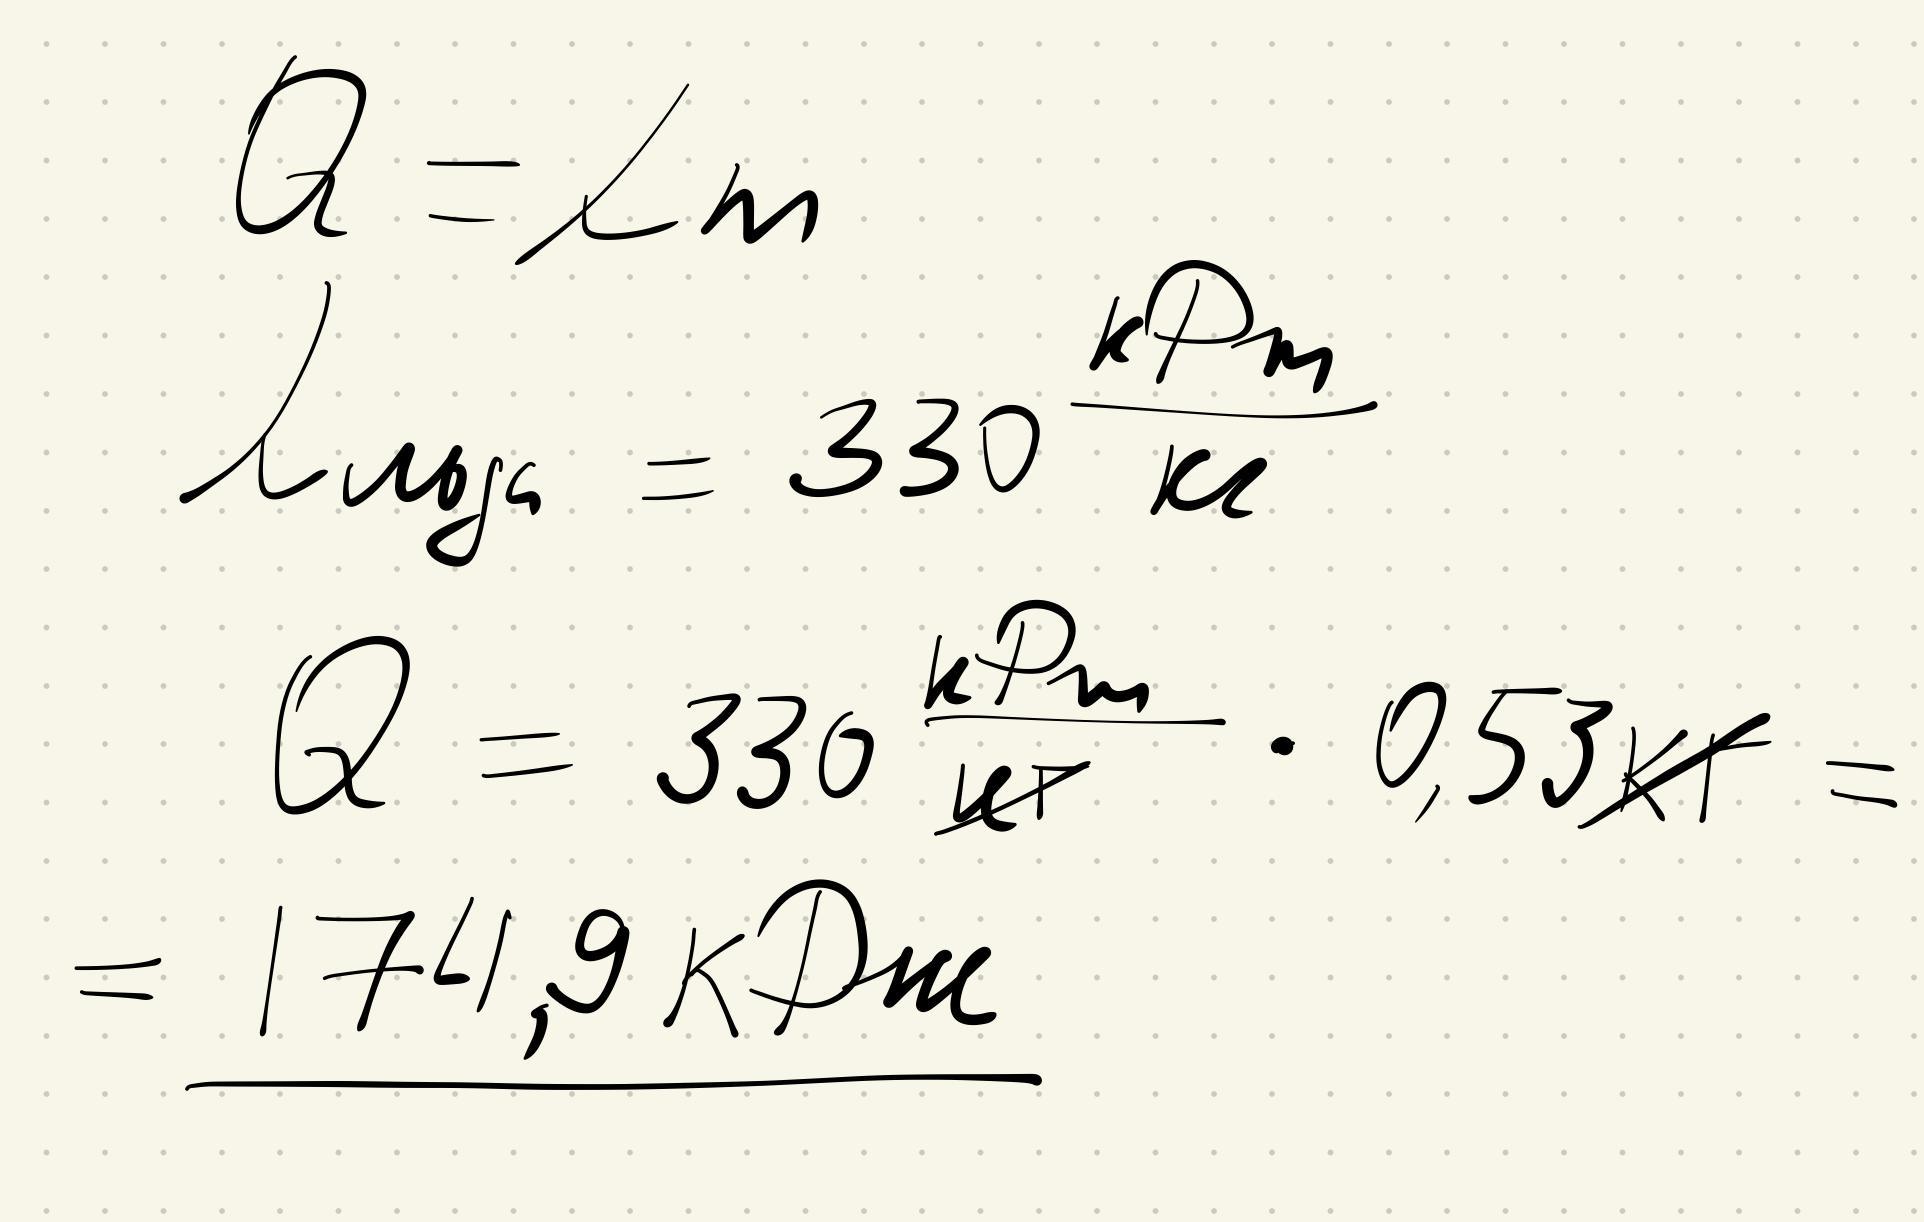 Q = λm
λльда = 330 кДж/кг
Q = 330 кДж/кг · 0,53кг =
= 174,9 кДж